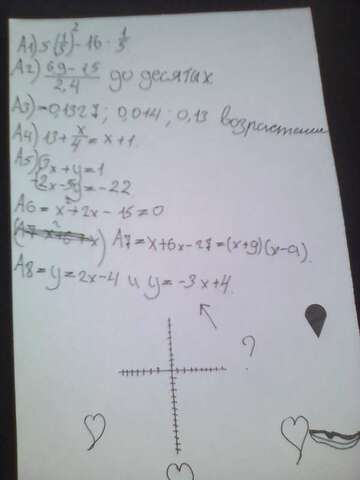 A1) 5(1/5)² - 16 · 1/5
A2) 69-15/2,4 до десятых
A3) -0,1327; 0,014; 0,13 возрастания
A4) 13+x/4=x+1
A5) 3x+y=1
-2x-5y=-22
A6=x²+2x-15=0
A7=x+6x-27=(x+9)(x-a)
A8=y=2x-4 и y=-3x+4.
?